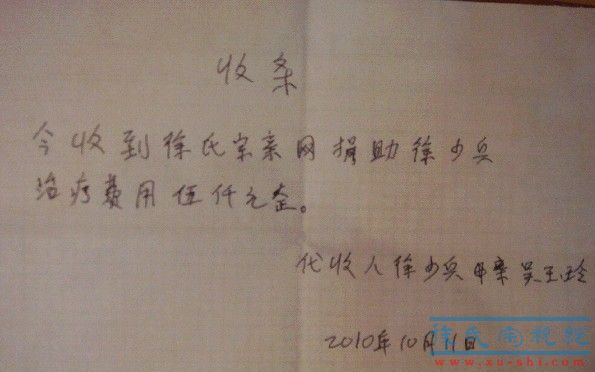 收条
今收到徐氏宗亲网捐助徐少兵
治疗费用伍仟元整。
代收人徐少兵母亲吴玉玲
2010年10月11日
徐氏电视
www.xu-shi.com